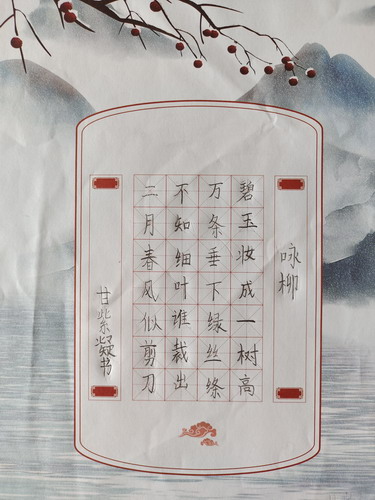 咏柳
碧玉妆成一树高
万条垂下缘丝绦
不知细叶谁裁出
二月春风似剪刀
甘紫凝书